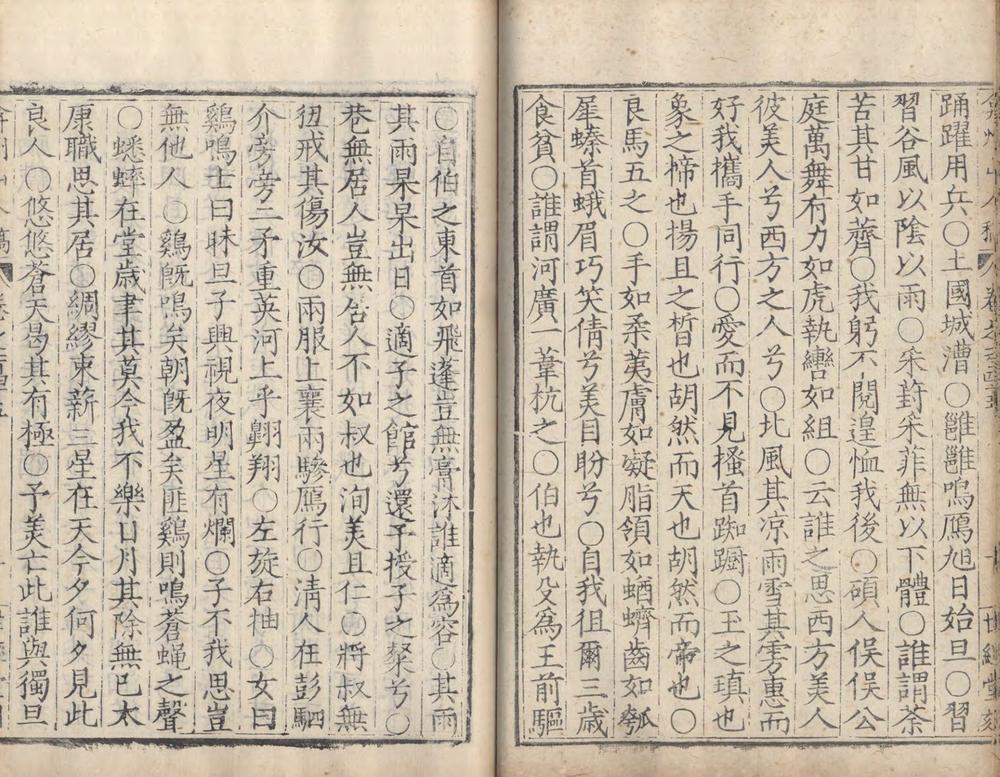 踊躍用兵○土國城漕○雝雝鳴鴈旭日始旦○習
習谷風以陰以雨○采葑采菲無以下體○誰謂荼
苦其甘如薺○我躬不閱遑恤我後○碩人俁俁公
庭萬舞有力如虎執轡如組○云誰之思西方美人
彼美人兮西方之人兮○北風其凉雨雪其雱惠而
好我攜手同行○愛而不見搔首踟躕○玉之瑱也
象之揥也揚且之晳也胡然而天也胡然而帝也○
良馬五之○手如柔荑膚如凝脂領如蝤蠐齒如瓠
犀螓首蛾眉巧笑倩兮美目盼兮○自我徂爾三歲
食貧○誰謂河廣一葦杭之○伯也執殳為王前驅
○自伯之東首如飛蓬豈無膏沐誰適為容○其雨
其雨杲杲出日○適子之館兮還予授子之粲兮○
巷無居人豈無居人不如叔也洵美且仁○將叔無
狃戒其傷汝○兩服上襄兩驂鴈行○清人在彭駟
介旁旁二矛重英河上乎翺翔○左旋右抽○女曰
鷄鳴士曰昧旦子興視夜明星有爛○子不我思豈
無他人○鷄旣鳴矣朝旣盈矣匪鷄則鳴蒼蝿之聲
○蟋蟀在堂歲聿其莫今我不樂日月其除無已太
康職思其居○綢繆束薪三星在天今夕何夕見此
良人○悠悠蒼天曷其有極○予美亡此誰與獨旦